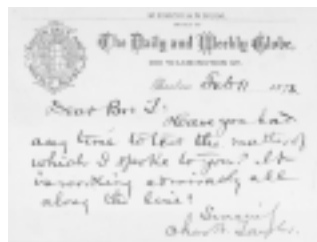 The Daily and Weekly Globe.
WASHINGTON ST.
Feb 11 187
Dear Bro J:
Have you had
any time to test the matter
which I spoke to you? It
is working admirably all
along the line!
Sincerely
Chas H. Taylor